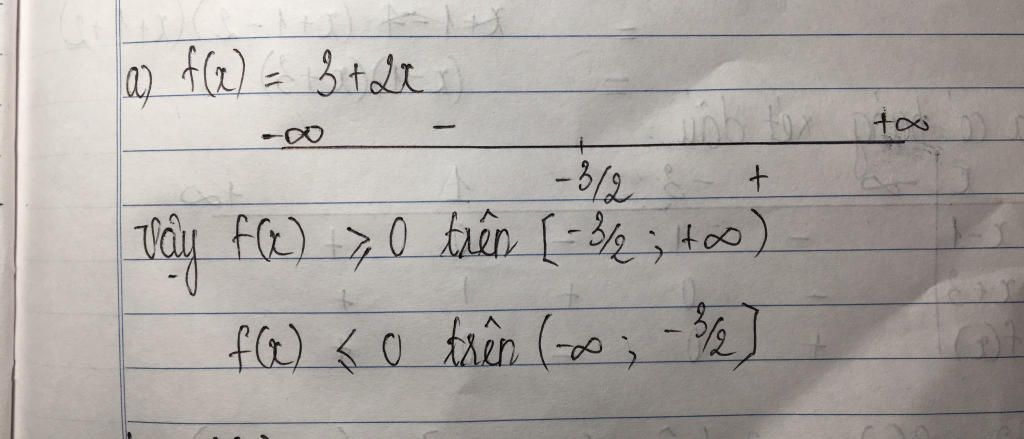 a) f(x) = 3 + 2x
-∞ - +∞
-3/2 +
Vậy f(x) ⩾ 0 trên [-3/2 ; +∞)
f(x) ⩽ 0 trên (-∞ ; -3/2]